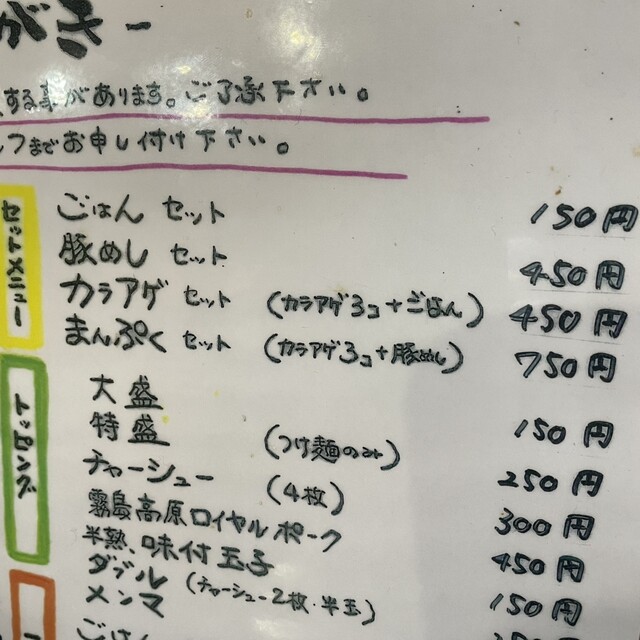 がき-
する事があります。ご了承下さい。
フまでお申し付け下さい。
セットメニュー
ごはん セット 150円
豚めし セット 450円
カラアゲ セット (カラアゲ3コ+ごはん) 450円
まんぷく セット (カラアゲ3コ+豚めし) 750円
トッピング
大盛 150円
特盛 (つけ麺のみ) 250円
チャーシュー (4枚) 300円
霧島高原ロイヤルポーク 450円
半熟、味付玉子 150円
ダブル (チャーシュー2枚・半玉)
メンマ
ごはん